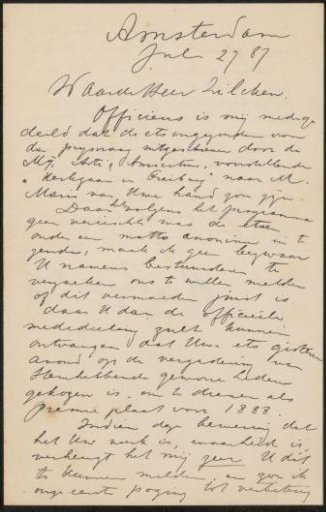 Amsterdam
Juli 27 87
Waarde Heer Zilcken.
Officieus is mij medege
deeld dat de ets ingezonden voor
de prijsvraag uitgeschreven door de
Mij. Arti et Amicitiae, voorstellende
" Kerkgaan in " naar M.
Maris van Uwe hand zou zijn.
Daar volgens het programma
geen vereischte was de etsen
onder een motto anoniem in te
zenden, maak ik geen bezwaar
U namens bestuurders te
verzoeken ons te willen melden
of dit vermoeden juist is.
daar U dan de officiële
mededeeling zult kunnen
ontvangen dat Uwe ets gisteren
avond op de vergadering van
Stemhebbende gewone leden
gekozen is om te dienen als
premie plaat voor 1888.
Indien deze bewering dat
het Uw werk is, waarheid is
verheugt het mij zeer U dit
te kunnen melden, en zou ik
onze eerste poging tot verbetering